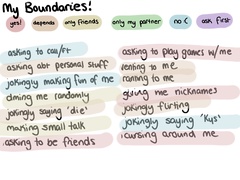 My Boundaries!
yes! depends only friends only my partner no :( ask first
asking to call/ft
asking abt personal stuff
jokingly making fun of me
dming me randomly
jokingly saying 'die'
making small talk
asking to be friends
asking to play games w/me
venting to me
ranting to me
giving me nicknames
jokingly flirting
jokingly saying 'kys'
cursing around me